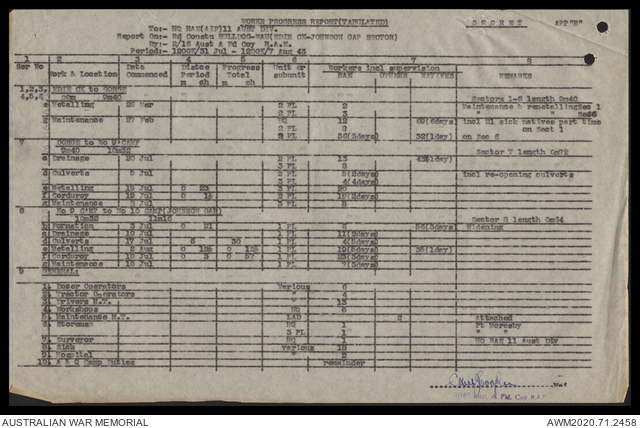 WORKS PROGRESS REPORT(TABULATED)
SECRET APP"B"
To:- HQ RAE(AIF)11 AUST DIV.
Report On:- Rd Constn BULLDOG-WAU(EDIE CK-JOHNSON GAP SECTOR)
By:- 2/16 Aust A Fd Coy R.A.E.
Period:- 1200K/31 Jul - 1200K/7 Aug 43
1 2 3 4 5 6 7 8
Ser No Work & Location Date Commenced Distce Period m ch Progress Total m ch Unit or subunit Workers incl supervision RAE OTHERS NATIVES REMARKS
1,2,3, EDIE CK to
4,5,6 00m 9m40 Sectors 1-6 length 9m40
e Metelling 2 PL 2 Maintenance & remetelling Sec 1
3 PL 3
g Maintenance 27 Feb HQ 12 incl 21 sick natives part time
2 PL on Sect 1
3 PL 36(3days) 32(1day) on Sec 6
7 to No 9 CAMP
9m40 10m32 Sector 7 length 0m72
c Drainage 20 Jul 2 PL 13 43(1day)
3 PL 8
d Culverts 5 Jul 2 PL 5(2days) incl re-opening culverts
3 PL 4(4days)
e Metelling 19 Jul 0 23 1 PL 20
f Corduroy 19 Jul 1 PL 10(2days)
g Maintenance 8 Jul 3 PL 8
8 No 9 CAMP to No 10 CAMP(JOHNSON GAP)
10m32 11m16 Sector 8 length 0m64
b Formation 3 Jul 0 21 1 PL 6 56(3days) Widening
c Drainage 10 Jul 1 PL 11(2days)
d Culverts 17 Jul 6 30 1 PL 4(5days)
e Metelling 2 Aug 0 18½ 0 18½ 1 PL 19(5days) 35(1day)
f Corduroy 10 Jul 0 3 0 57 1 PL 23(3days)
g Maintenance 10 Jul 1 PL 7(3days)
9 GENERAL:
1. Dozer Operators Various 6
2. Tractor Operators " 4
3. Drivers M.T. " 13
4. Workshops HQ 6
5. Maintenance M.T. LAD 2 Attached
6. Storeman HQ 1 Pt Moresby
3 PL 1 " "
7. Surveyor HQ 1 HQ RAE 11 Aust Div
8. Sick Various 18
9. Hospital 2
10. A & Q Camp Duties remainder
Fd. Coy R.A.E.
AUSTRALIAN WAR MEMORIAL
AWM2020.71.2458